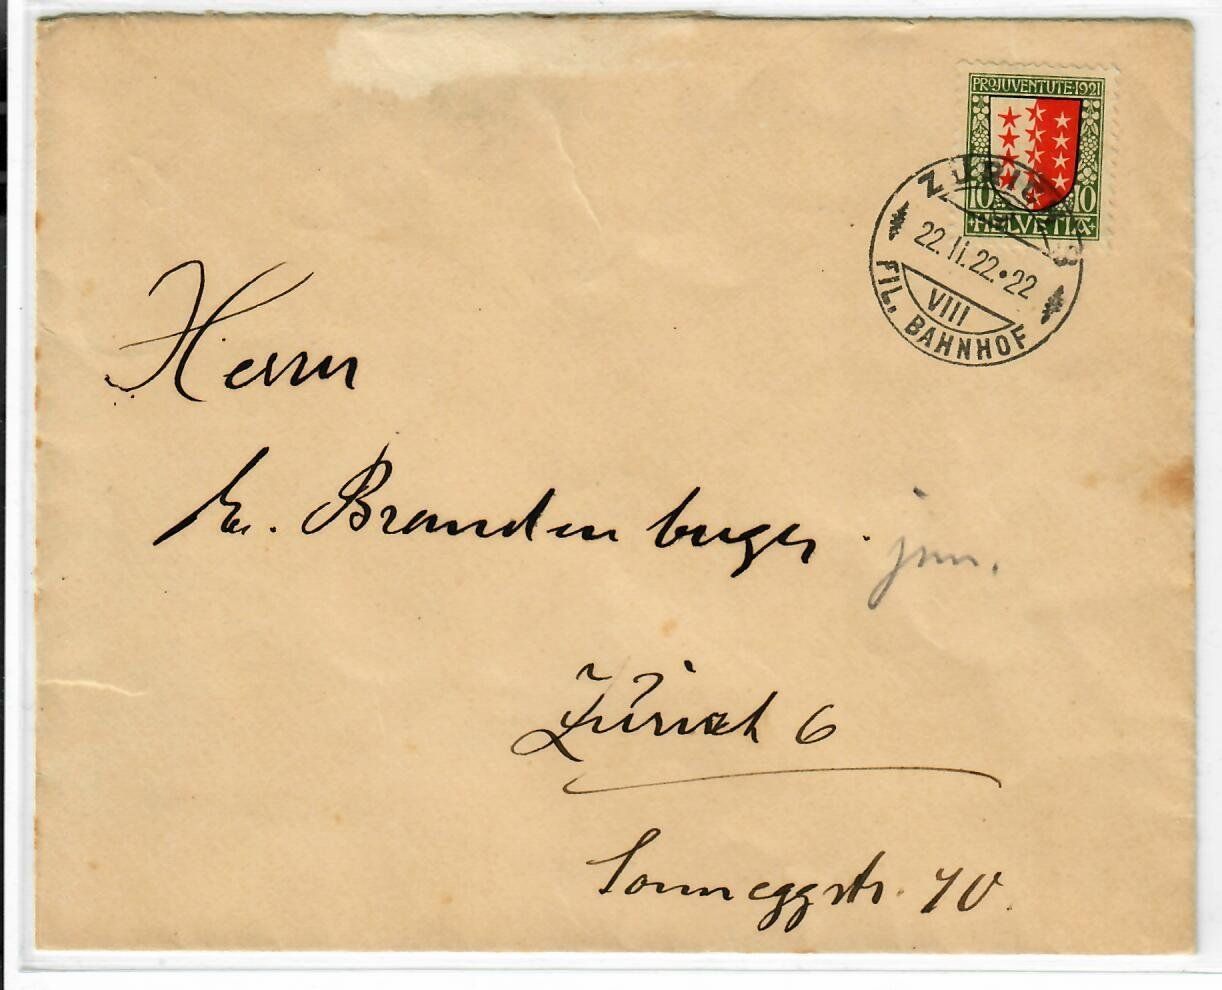 PRO JUVENTUTE·1921
10 10
+HELVETIA+
ZÜRICH 3
22.II.22·22
VIII
FIL. BAHNHOF
Herrn
E. Brandenburger jun.
Zürich 6
Sonneggstr. 70.